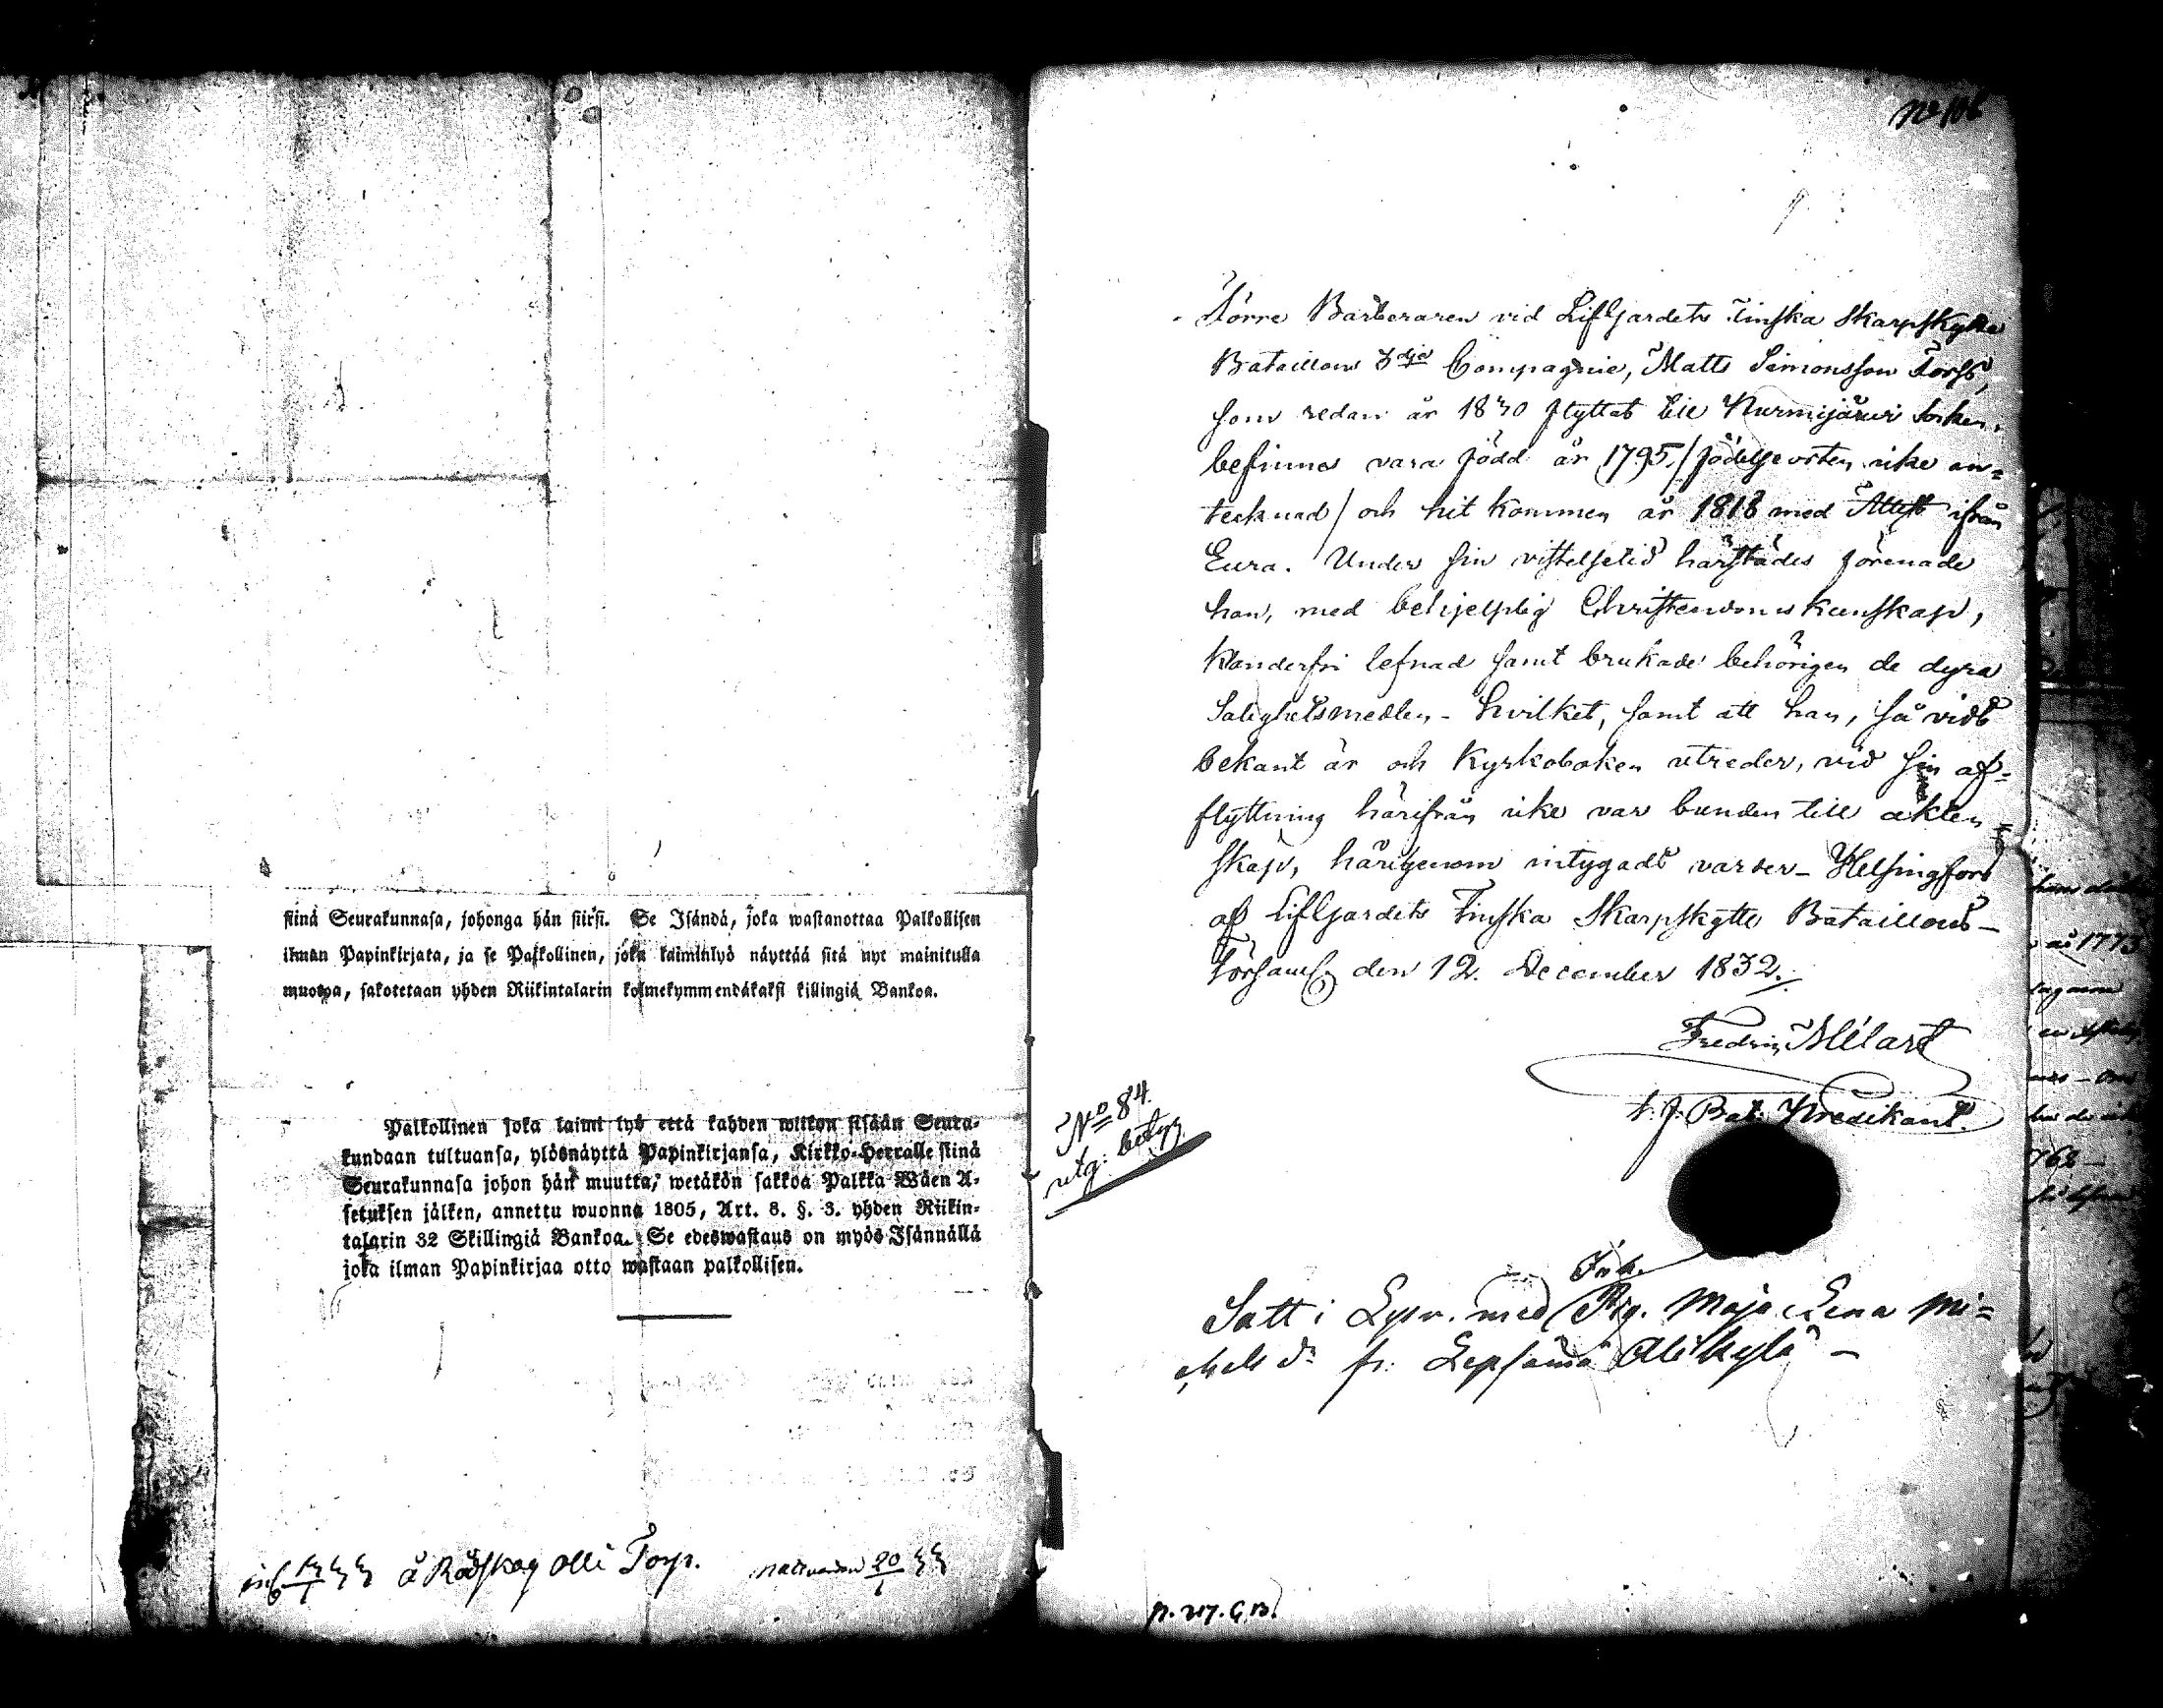 stinä Seurakunnasa, johonga hän siirsi. Se Isändä, joka wastanottaa Palkollisen
ilman Papinkirjata, ja se Palkollinen, joka laiminlyö näyttää sitä nyt mainitulla
muotoa, sakotetaan yhden Riikintalarin kolmekymmendäkaksi killingiä Bankoa.
Palkollinen joka laimi lyö että kahden wiikon sisään Seura-
kundaan tultuansa, ylösnäyttä Papinkirjansa, Kirkko-Herralle siinä
Seurakunnasa johon hän muutta, wetäkön sakkoa Palkka Wäen A-
setuksen jälken, annettu wuonna 1805, Art. 8. §. 3. yhden Riikin-
talarin 32 Skillingiä Bankoa. Se edeswastaus on myös Isännällä
joka ilman Papinkirjaa otto wastaan palkollisen.
å Rödskog Olli Torp.
No 106
Förre Barberaren vid LifGardets Finska Skarpskytte
Bataillons 3dje Compagnie, Matts Simonsson Forss,
som redan år 1830 flyttat till Nurmijärvi Socken,
befinnes vara född år 1795, /födelseorten icke an=
tecknad/ och hit kommen år 1818 med Attest ifrån
Eura. Under sin vistelsetid härstädes förenade
han, med behjelplig Christendomskunskap,
klanderfri lefnad samt brukade behörigen de dyra
Salighetsmedlen - hvilket, samt att han, så vidt
bekant är och Kyrkoboken utreder, vid sin af=
flyttning härifrån icke var bunden till äkten=
skap, härigenom intygadt varder - Helsingfors
af LifGardets Finska Skarpskytte Bataillons-
Församl. den 12. December 1832.
Fredric Mélart
t. f. Bat. Predikant.
No 84.
utg: betyg
Inh.
Satt i Lysn. med Pig. Maja Lena Mi=
chelsdr fr. Lepsämä Alikylä -
p. 217. G.B.